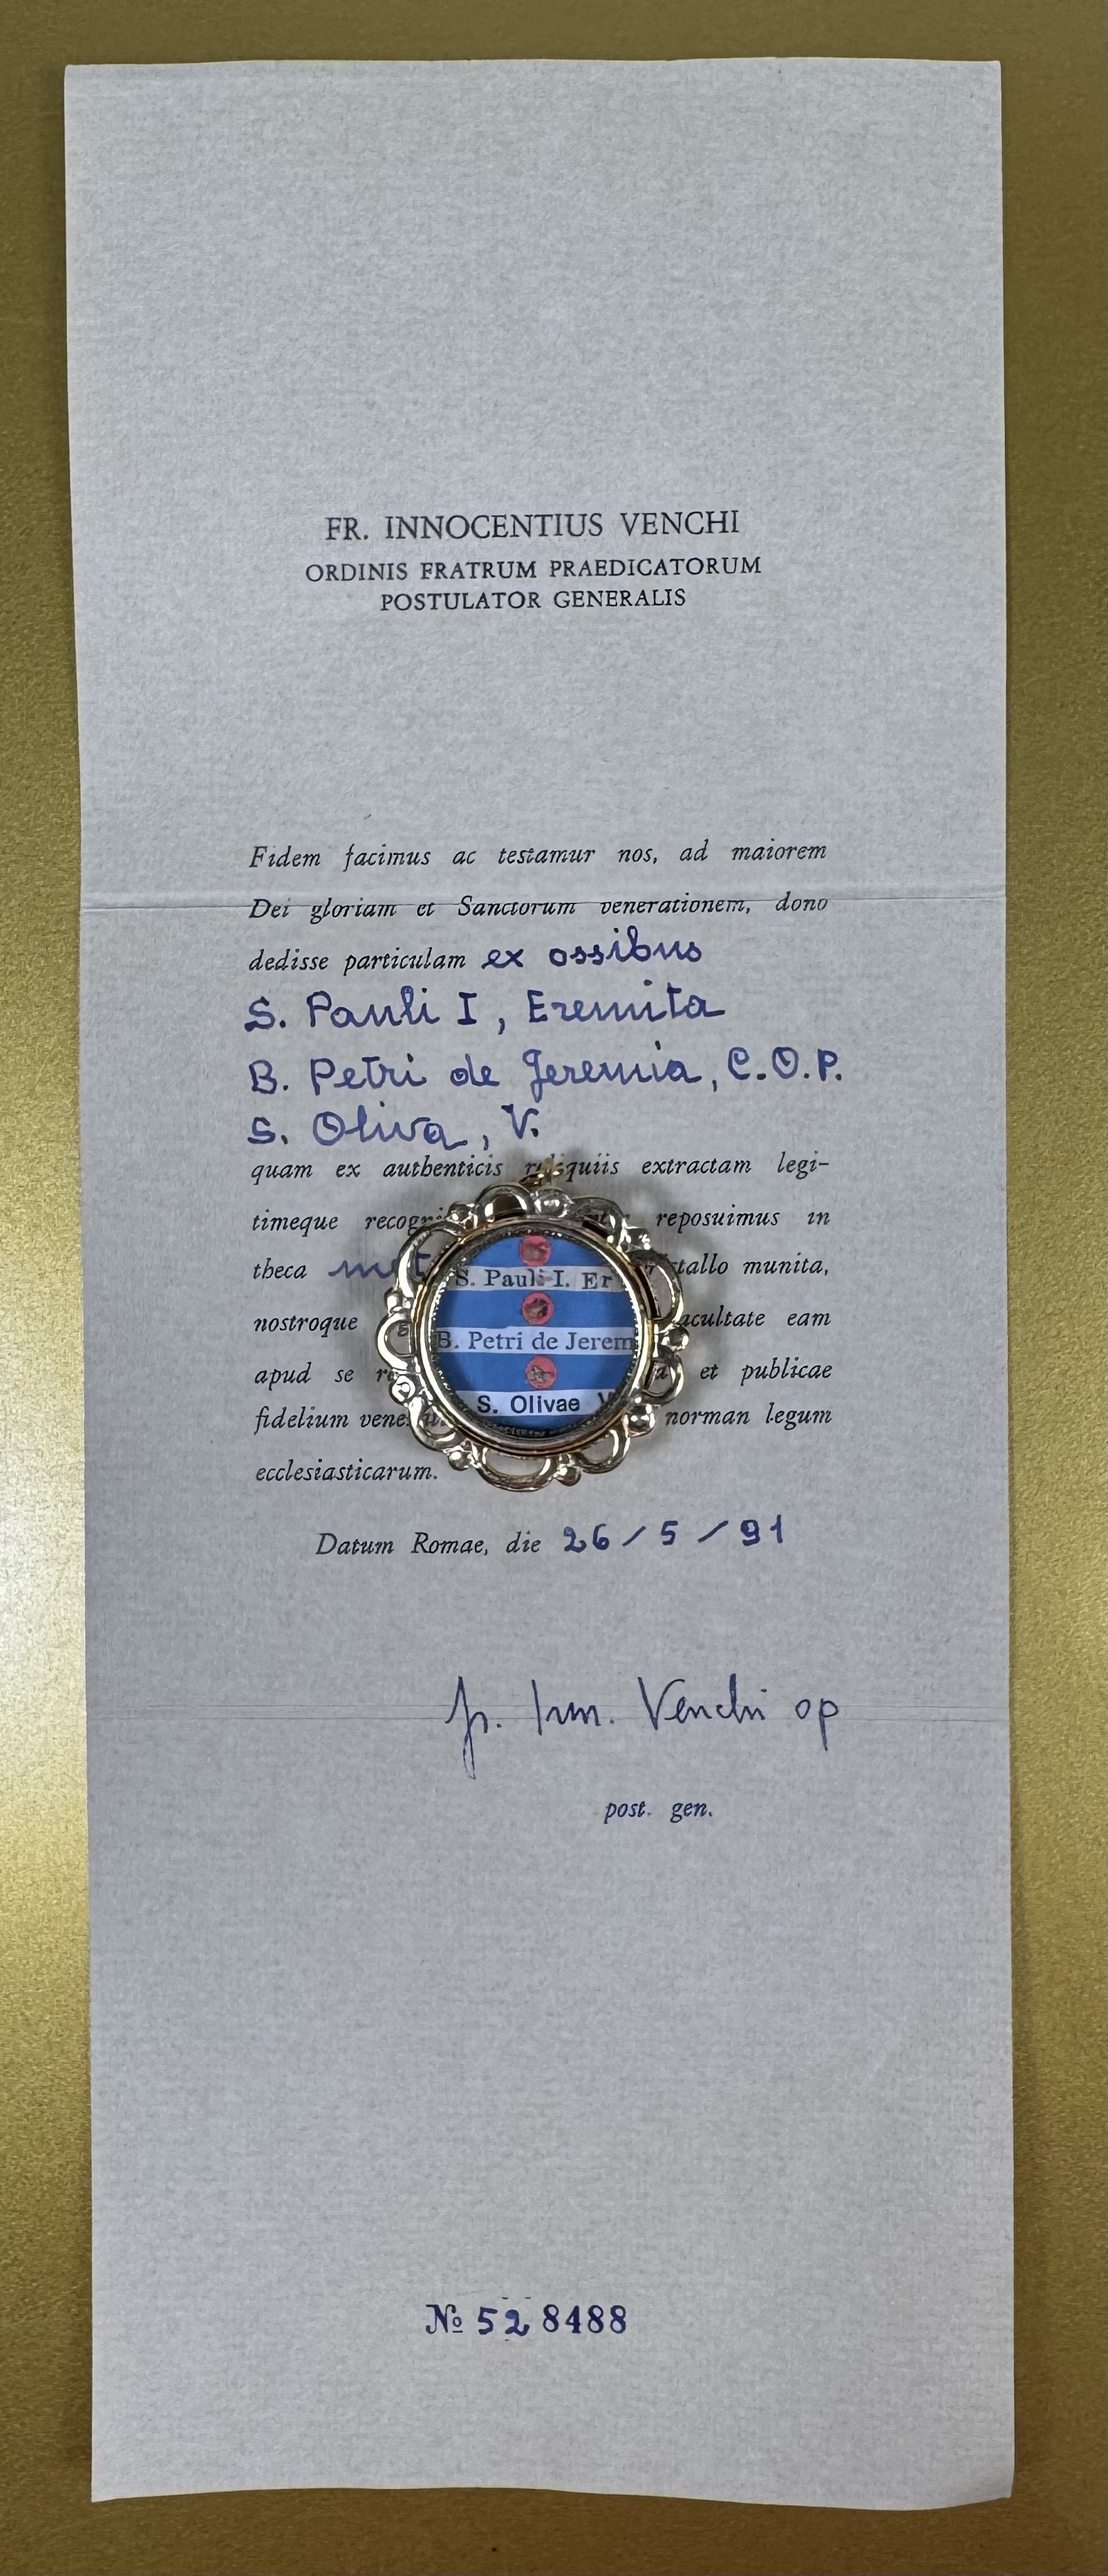 FR. INNOCENTIUS VENCHI
ORDINIS FRATRUM PRAEDICATORUM
POSTULATOR GENERALIS
Fidem facimus ac testamur nos, ad maiorem
Dei gloriam et Sanctorum venerationem, dono
dedisse particulam ex ossibus
S. Pauli I, Eremita
B. Petri de Jeremia, C.O.P.
S. Oliva, V.
quam ex authenticis reliquiis extractam legi-
timeque reposuimus in
theca munita,
nostroque eam
apud se et publicae
fidelium norman legum
ecclesiasticarum.
S. Pauli I. Er
B. Petri de Jerem
S. Olivae V
Datum Romae, die 26/5/91
fr. Inn. Venchi op
post. gen.
№ 528488